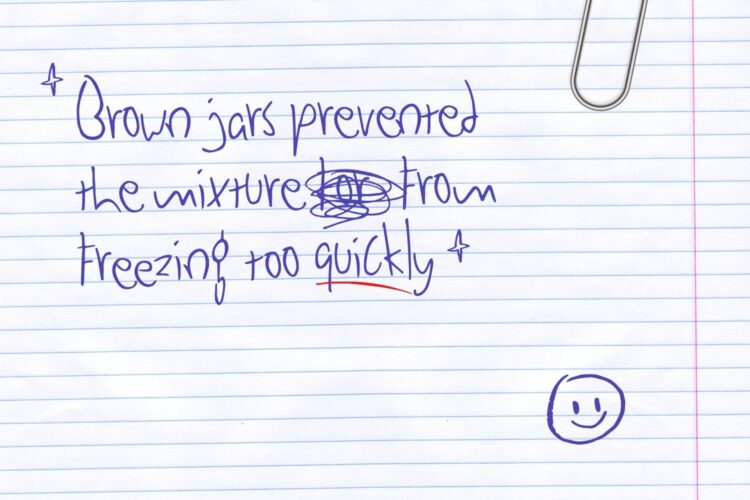 Brown jars prevented
the mixture from
freezing too quickly